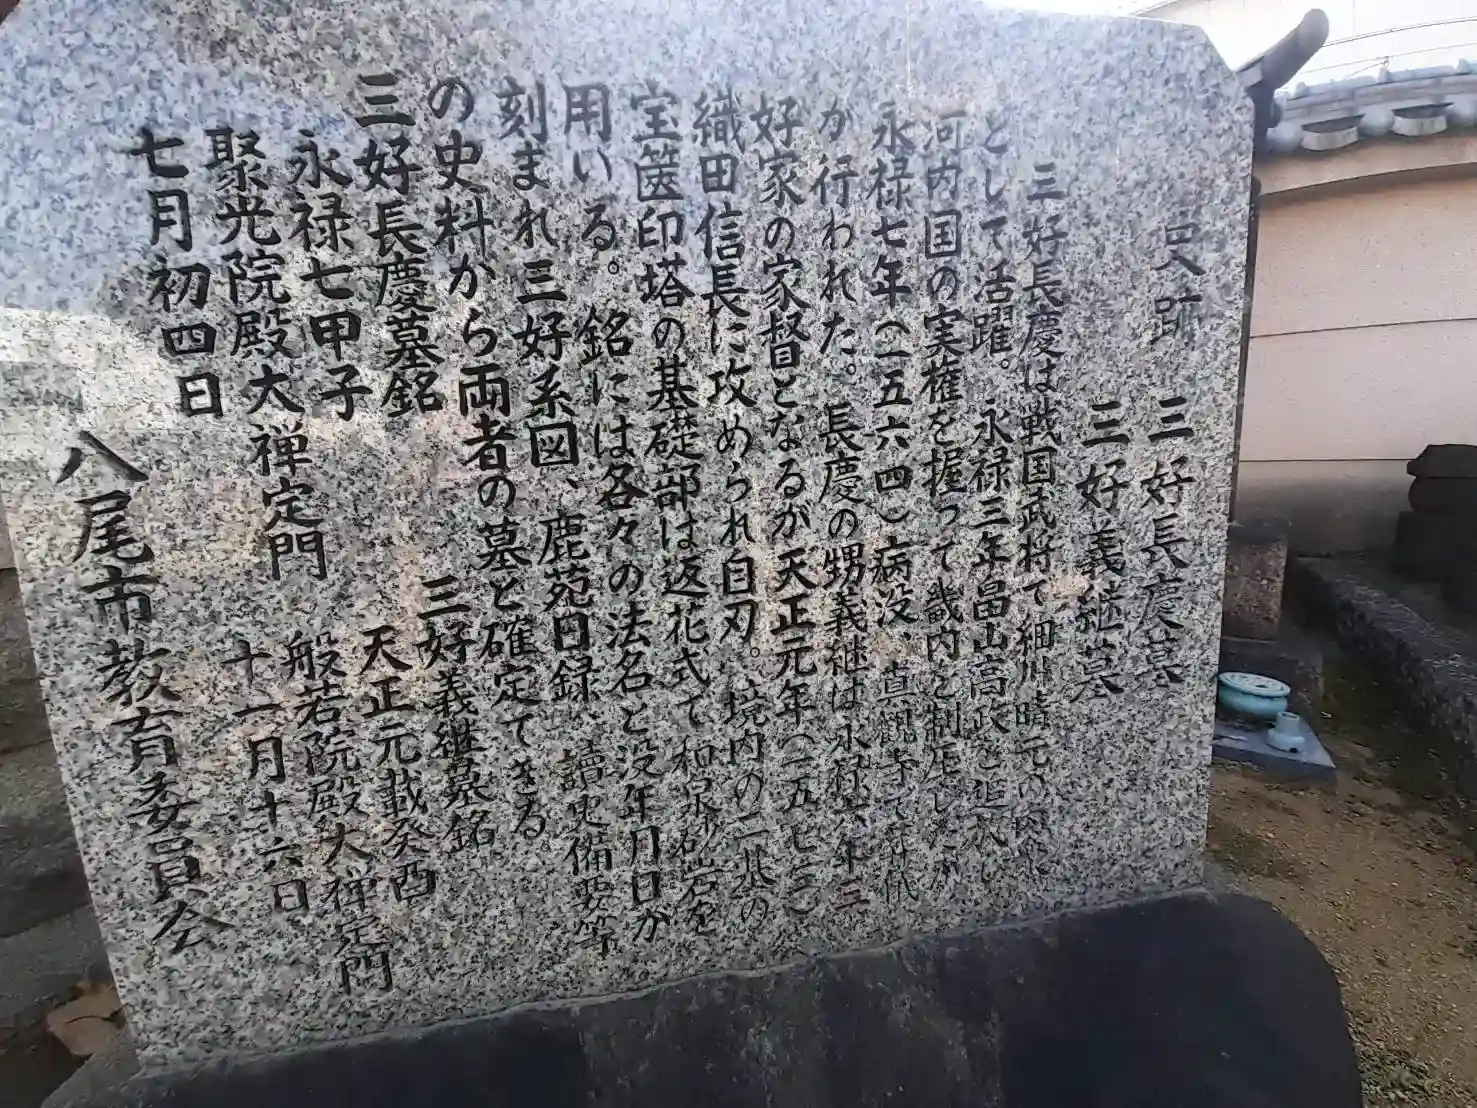 史跡 三好長慶墓
三好義継墓
三好長慶は戦国武将で細川晴元の
として活躍。永禄三年畠山高政を追放し
河内国の実権を握って畿内を制圧したが
永禄七年(一五六四)病没、真観寺で
が行われた。長慶の甥義継は永禄 年三
好家の家督となるが天正元年(一五七三)
織田信長に攻められ自刃。境内の二基の
宝篋印塔の基礎部は返花式で和泉砂岩を
用いる。銘には各々の法名と没年月日が
刻まれ三好系図、鹿苑日録、讀史備要等
の史料から両者の墓と確定できる。
三好長慶墓銘
永禄七甲子
聚光院殿大禅定門
七月初四日
三好義継墓銘
天正元載癸酉
般若院殿大禅定門
十一月十六日
八尾市教育委員会